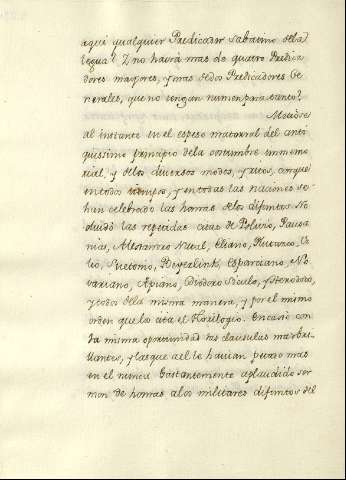 aqui qualquier Predicador Sabatino de la
legua? Y no havrá mas de quatro Predica-
dores mayores, y mas de dos Predicadores Ge-
nerales, que no tengan numen para tanto?
Metiose
al instante en el espeso matorral del anti-
quissimo principio de la costumbre immemo-
rial, y de los diversos modos, y ritos, con que
en todos tiempos, y en todas las naciones se
han celebrado las honras de los difuntos. No
olvidó las repetidas citas de Polivio, Pausa-
nias, Alexandro Neapol, Eliano, Plutarco, Ce-
lio, Suetonio, Beyerlink, Esparciano, No-
variano, Apiano, Diodoro Siculo, y Herodoto,
y todo de la misma manera, y por el mismo
orden que los cita el Florilogio. Encaxó con
la misma oportunidad las clausulas mas bri-
llantes, y las que a el le havian petado mas
en el nunca bastantemente aplaudido ser-
mon de honras a los militares difuntos del